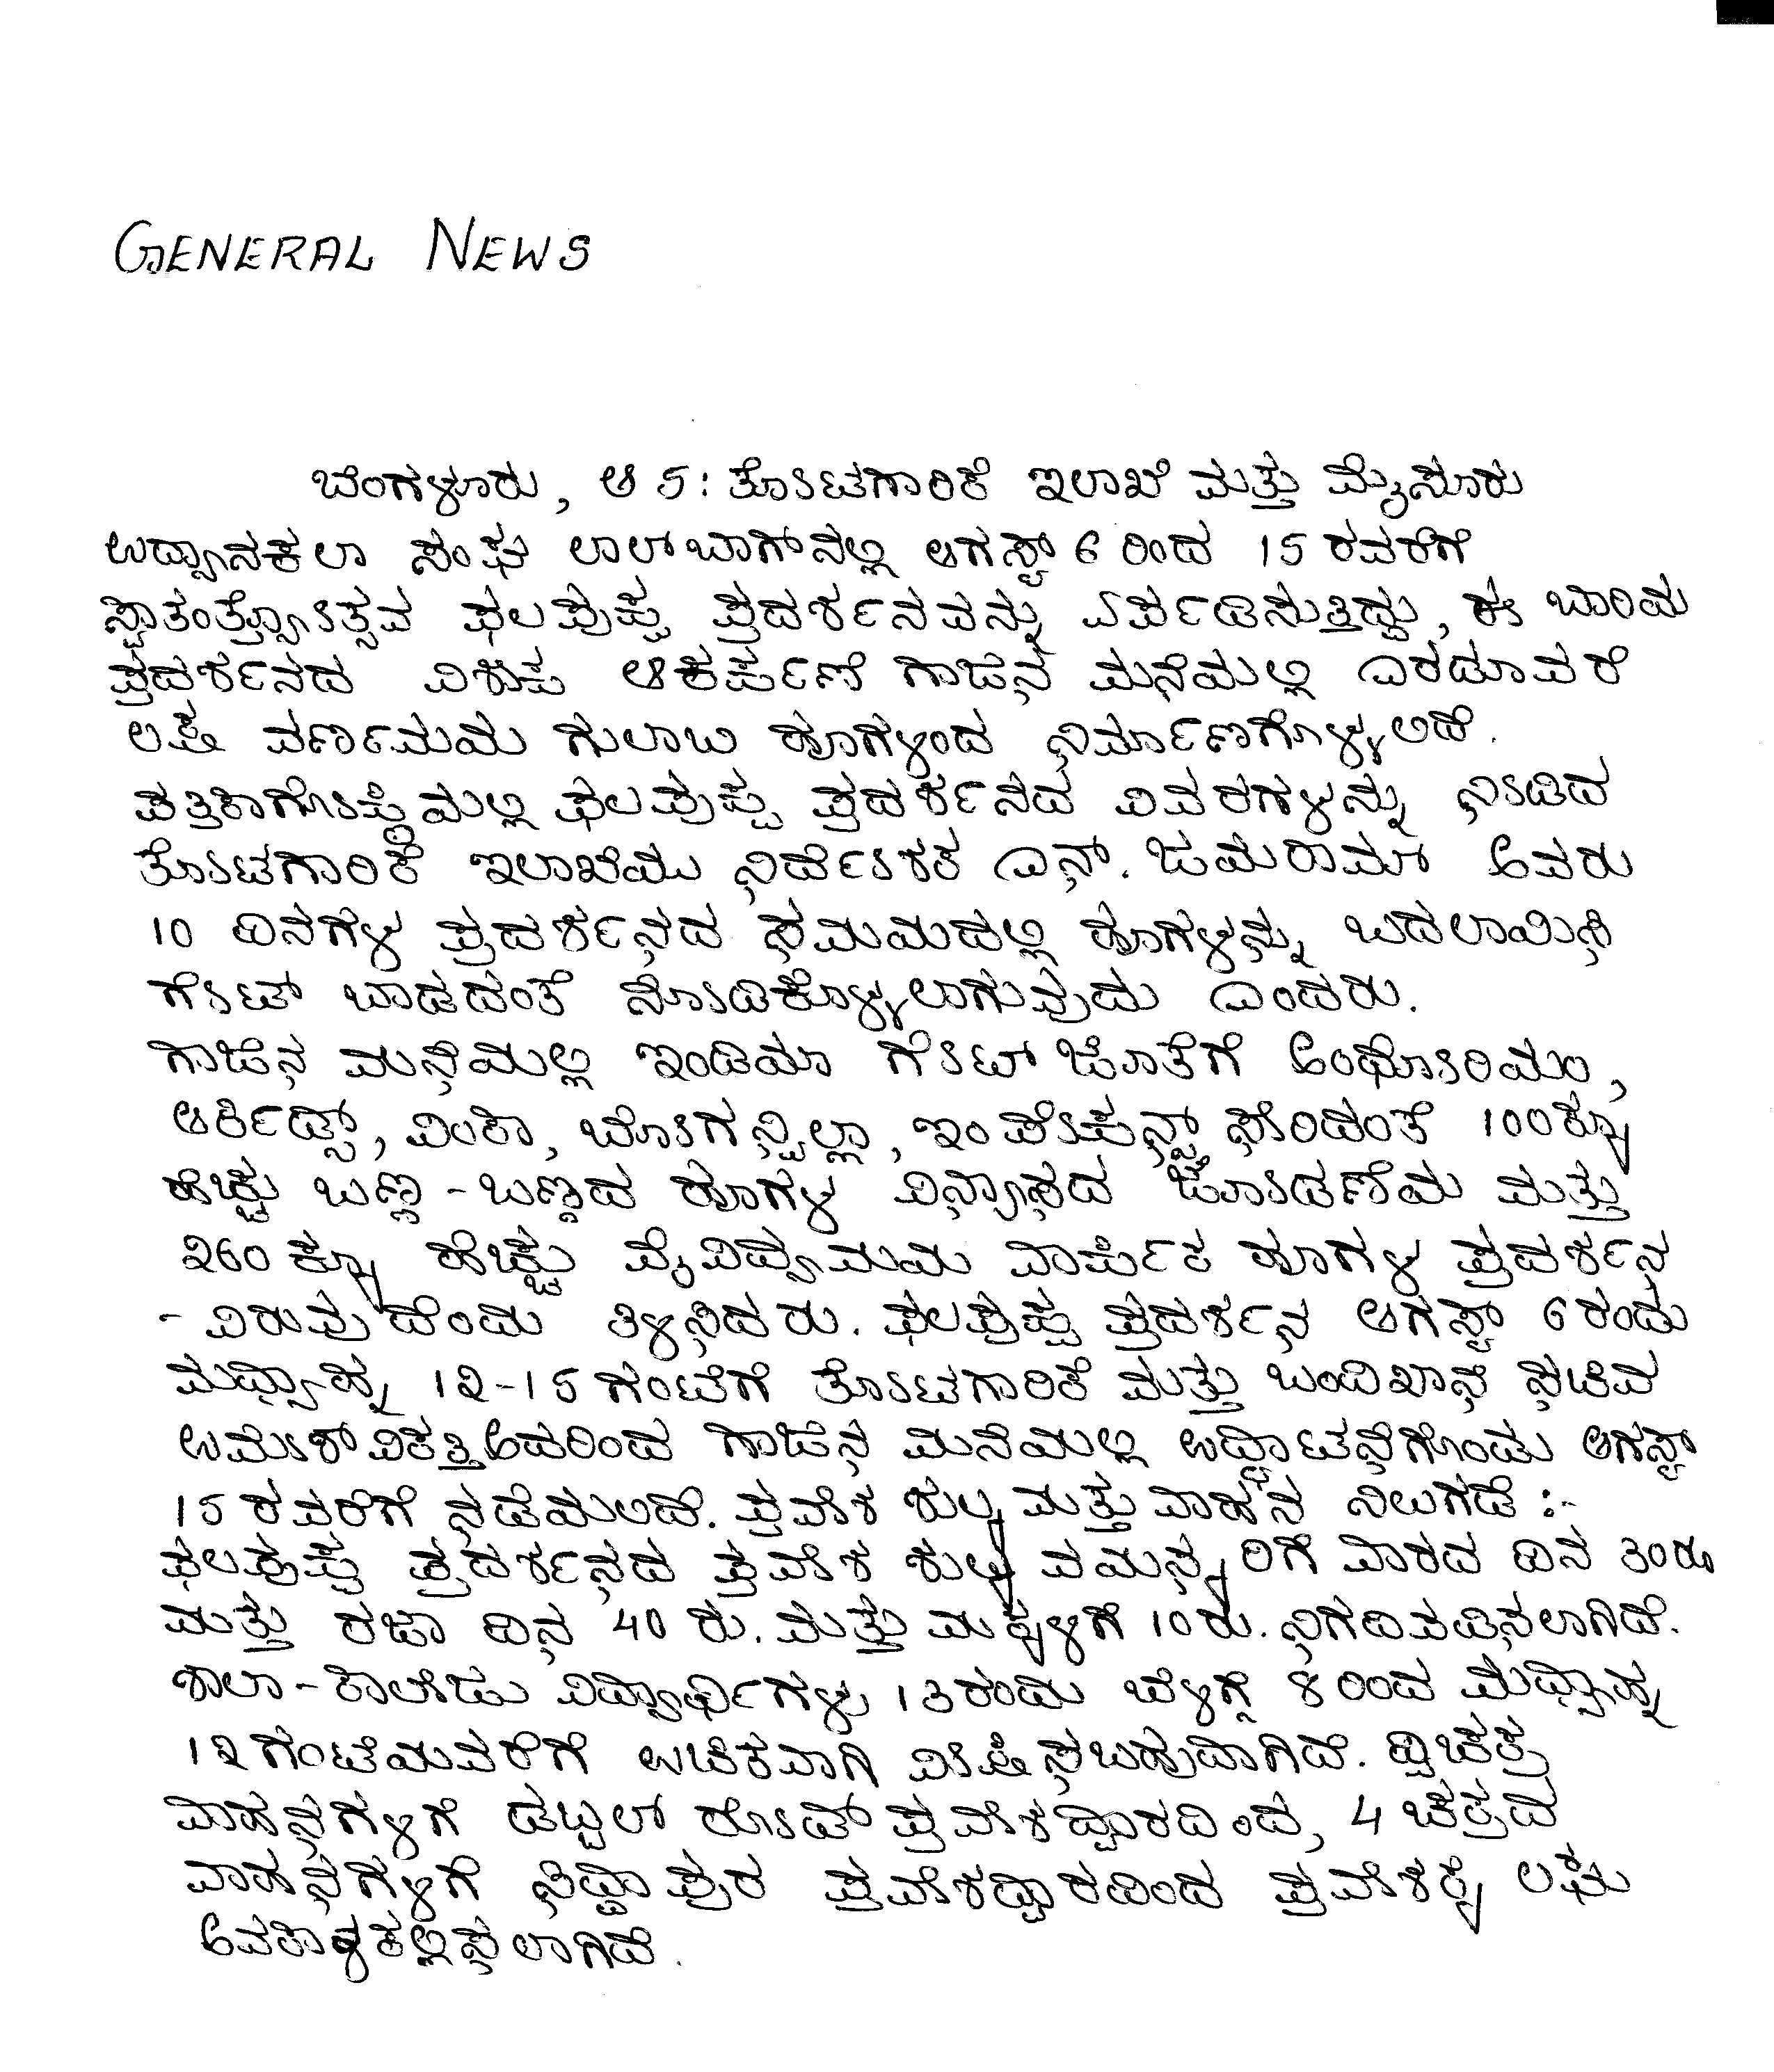 GENERAL NEWS
ಬೆಂಗಳೂರು, ಆ 5: ತೋಟಗಾರಿಕೆ ಇಲಾಖೆ ಮತ್ತು ಮೈಸೂರು
ಉದ್ಯಾನಕಲಾ ಸಂಘ ಲಾಲ್‌ಬಾಗ್‌ನಲ್ಲಿ ಆಗಸ್ಟ್ 6 ರಿಂದ 15 ರವರೆಗೆ
ಸ್ವಾತಂತ್ರ್ಯೋತ್ಸವ ಫಲಪುಷ್ಪ ಪ್ರದರ್ಶನವನ್ನು ಏರ್ಪಡಿಸುತ್ತಿದ್ದು, ಈ ಬಾರಿಯ
ಪ್ರದರ್ಶನದ ವಿಶೇಷ ಆಕರ್ಷಣೆ ಗಾಜಿನ ಮನೆಯಲ್ಲಿ ಎರಡೂವರೆ
ಲಕ್ಷ ವರ್ಣಮಯ ಗುಲಾಬಿ ಹೂಗಳಿಂದ ನಿರ್ಮಾಣಗೊಳ್ಳಲಿದೆ.
ಪತ್ರಿಕಾಗೋಷ್ಠಿಯಲ್ಲಿ ಫಲಪುಷ್ಪ ಪ್ರದರ್ಶನದ ವಿವರಗಳನ್ನು ನೀಡಿದ
ತೋಟಗಾರಿಕೆ ಇಲಾಖೆಯ ನಿರ್ದೇಶಕ ಎನ್. ಜಯರಾಮ್ ಅವರು
10 ದಿನಗಳ ಪ್ರದರ್ಶನದ ಸಮಯದಲ್ಲಿ ಹೂಗಳನ್ನು ಬದಲಾಯಿಸಿ
ಗೇಟ್ ಬಾಡದಂತೆ ನೋಡಿಕೊಳ್ಳಲಾಗುವುದು ಎಂದರು.
ಗಾಜಿನ ಮನೆಯಲ್ಲಿ ಇಂಡಿಯಾ ಗೇಟ್ ಜೊತೆಗೆ ಅಂಥೋರಿಯಂ,
ಆರ್ಕಿಡ್ಸ್, ವಿಂಕಾ, ಬೋಗನ್ವಿಲ್ಲಾ, ಇಂಪೇಷನ್ಸ್ ಸೇರಿದಂತೆ 100ಕ್ಕೂ
ಹೆಚ್ಚು ಬಣ್ಣ-ಬಣ್ಣದ ಹೂಗಳ ವಿನ್ಯಾಸದ ಜೋಡಣೆಯ ಮತ್ತು
260 ಕ್ಕೂ ಹೆಚ್ಚು ವೈವಿಧ್ಯಮಯ ವಾರ್ಷಿಕ ಹೂಗಳ ಪ್ರದರ್ಶನ
-ವಿರುವುದೆಂದು ತಿಳಿಸಿದರು. ಫಲಪುಷ್ಪ ಪ್ರದರ್ಶನ ಆಗಸ್ಟ್ 6ರಂದು
ಮಧ್ಯಾಹ್ನ 12-15 ಗಂಟೆಗೆ ತೋಟಗಾರಿಕೆ ಮತ್ತು ಬಂದಿಖಾನೆ ಸಚಿವ
ಉಮೇಶ್ ವಿಕತ್ತಿ ಅವರಿಂದ ಗಾಜಿನ ಮನೆಯಲ್ಲಿ ಉದ್ಘಾಟನೆಗೊಂಡು ಆಗಸ್ಟ್
15 ರವರೆಗೆ ನಡೆಯಲಿದೆ. ಪ್ರವೇಶ ಶುಲ್ಕ ಮತ್ತು ವಾಹನ ನಿಲುಗಡೆ :-
ಫಲಪುಷ್ಪ ಪ್ರದರ್ಶನದ ಪ್ರವೇಶ ಶುಲ್ಕ ವಯಸ್ಕರಿಗೆ ವಾರದ ದಿನ 30ರೂ
ಮತ್ತು ರಜಾ ದಿನ 40 ರು. ಮತ್ತು ಮಕ್ಕಳಿಗೆ 10ರು. ನಿಗದಿಪಡಿಸಲಾಗಿದೆ.
ಶಾಲಾ-ಕಾಲೇಜು ವಿದ್ಯಾರ್ಥಿಗಳು 13ರಂದು ಬೆಳಿಗ್ಗೆ 8 ರಿಂದ ಮಧ್ಯಾಹ್ನ
12ಗಂಟೆಯವರೆಗೆ ಉಚಿತವಾಗಿ ವೀಕ್ಷಿಸಬಹುದಾಗಿದೆ. ದ್ವಿಚಕ್ರ
ವಾಹನಗಳಿಗೆ ಡಬ್ಬಲ್ ರೋಡ್ ಪ್ರವೇಶದ್ವಾರದಿಂದ, 4 ಚಕ್ರದ
ವಾಹನಗಳಿಗೆ ಸಿದ್ಧಾಪುರ ಪ್ರವೇಶದ್ವಾರದಿಂದ ಪ್ರವೇಶಕ್ಕೆ ಲಘು
ಅವಕಾಶ ಕಲ್ಪಿಸಲಾಗಿದೆ.